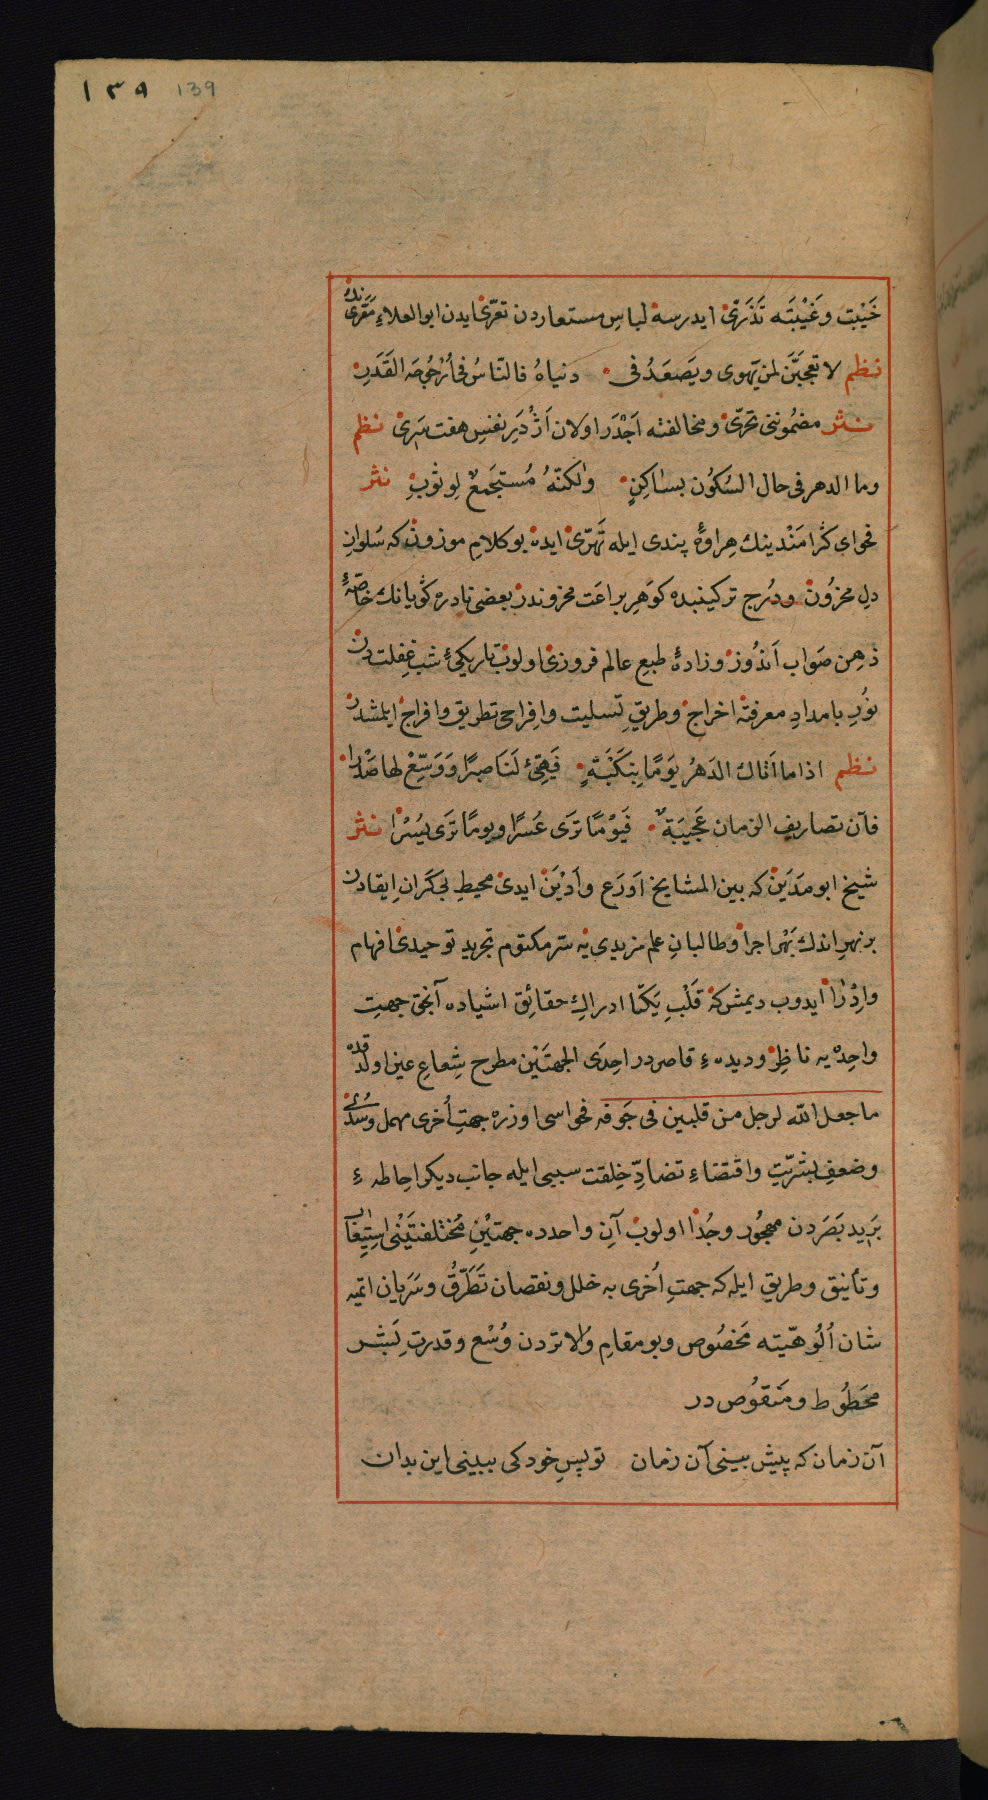 ١٣٩ 139
خَيْبَت وغَيْبَته تَذَرّى ايدرسه لباسِ مستعاردن تعرّى ايدن ابو العلاءِ مَعَرّى
نظم لا تعجبَنَّ لمن يَهوى ويَصعَدُ فى دنياهُ فالنّاسُ فى اُرْجُوحَه القَدَرِ
نثر مضمُوننى تحرّى ومخالفته اَجْدَر اولان نفسِ هفت سَرِى نظم
وما الدهر فى حال السُكوُن بسٰاكِنٍ ولٰكنّهُ مُستَجمَعٌ لِوثوُبِ نثر
فحواى پندى ايله تَهَرّى ايده بو كلامِ موزون كه سُلوانِ
دلِ محزُون ودُرج تركيبنده كوَهرِ براعَت مخزوندر بعضى نادره كويانك خاصّهٔ
ذهنِ صَواب اَندُوز وزادهٔ طبعِ عالم فروزى اولوب تاريكىٔ شب غِفلت‌دن
نوُرِ بامدادِ معرفته اخراج وطريقِ تسليت واِفراحى تطريق وافراج ايلمشدر
نظم اذا ما اَتاك الدَهرُ يَومًا بِنَكَبَةٍ فَهيّئ لَها صبرًا وَوَسِّعْ لها صَدْرا
فآن تصاريف الزمان عَجيبَةٌ فَيَوْمًا تَرَى عُسرًا ويومًا تَرَى يُسْرًا نثر
شيخ ابو مَدْيَن كه بين المشايخ اَورَع واَدْيَنْ ايدى محيطِ بى كرانِ ايقاندن
بر نهرِ اندك بَهْر اجرا وطالبانِ علم مزيدى يه سّرِ مكتوم تجريدِ توحيدى افهام
واِدْرٰا ايدوب ديمش كه قَلْبِ يَكتا ادراكِ حقائقِ اشياده آنجق جهتِ
واحِدْه يه ناظِرْ وديدهءِ قاصردر احِدَى الجهتَيْن مطرحِ شِعاعِ عين اولدقده
ما جعل اللّه لرجل من قلبين فى جَوفه فحواسى اوزره جهتِ اُخرى مهمل وسُدى
وضعفِ بشرّيت واقتضاءِ تضادِّ خِلقت سببى ايله جانب ديكر احاطهءِ
بَرَيد بَصَردن مهجُور وجُدا اولوب آنِ واحدده جهتيْنِ مُختلفتَيْنى اِستيعاب
وتأنيق وطريقى ايله كه جهتِ اُخرى يه خلل ونقصان تَطَرُّق وسَرَيان اتميه
شان اُلوُهيّته مَخصُوص وبو مقامِ والاتردن وُسْع وقدرتِ بَشر
محَطُوط ومَنقوُص در
آن زمان كه پيش بينى آن زمان تو پسِ خود كى ببينى اين بدان